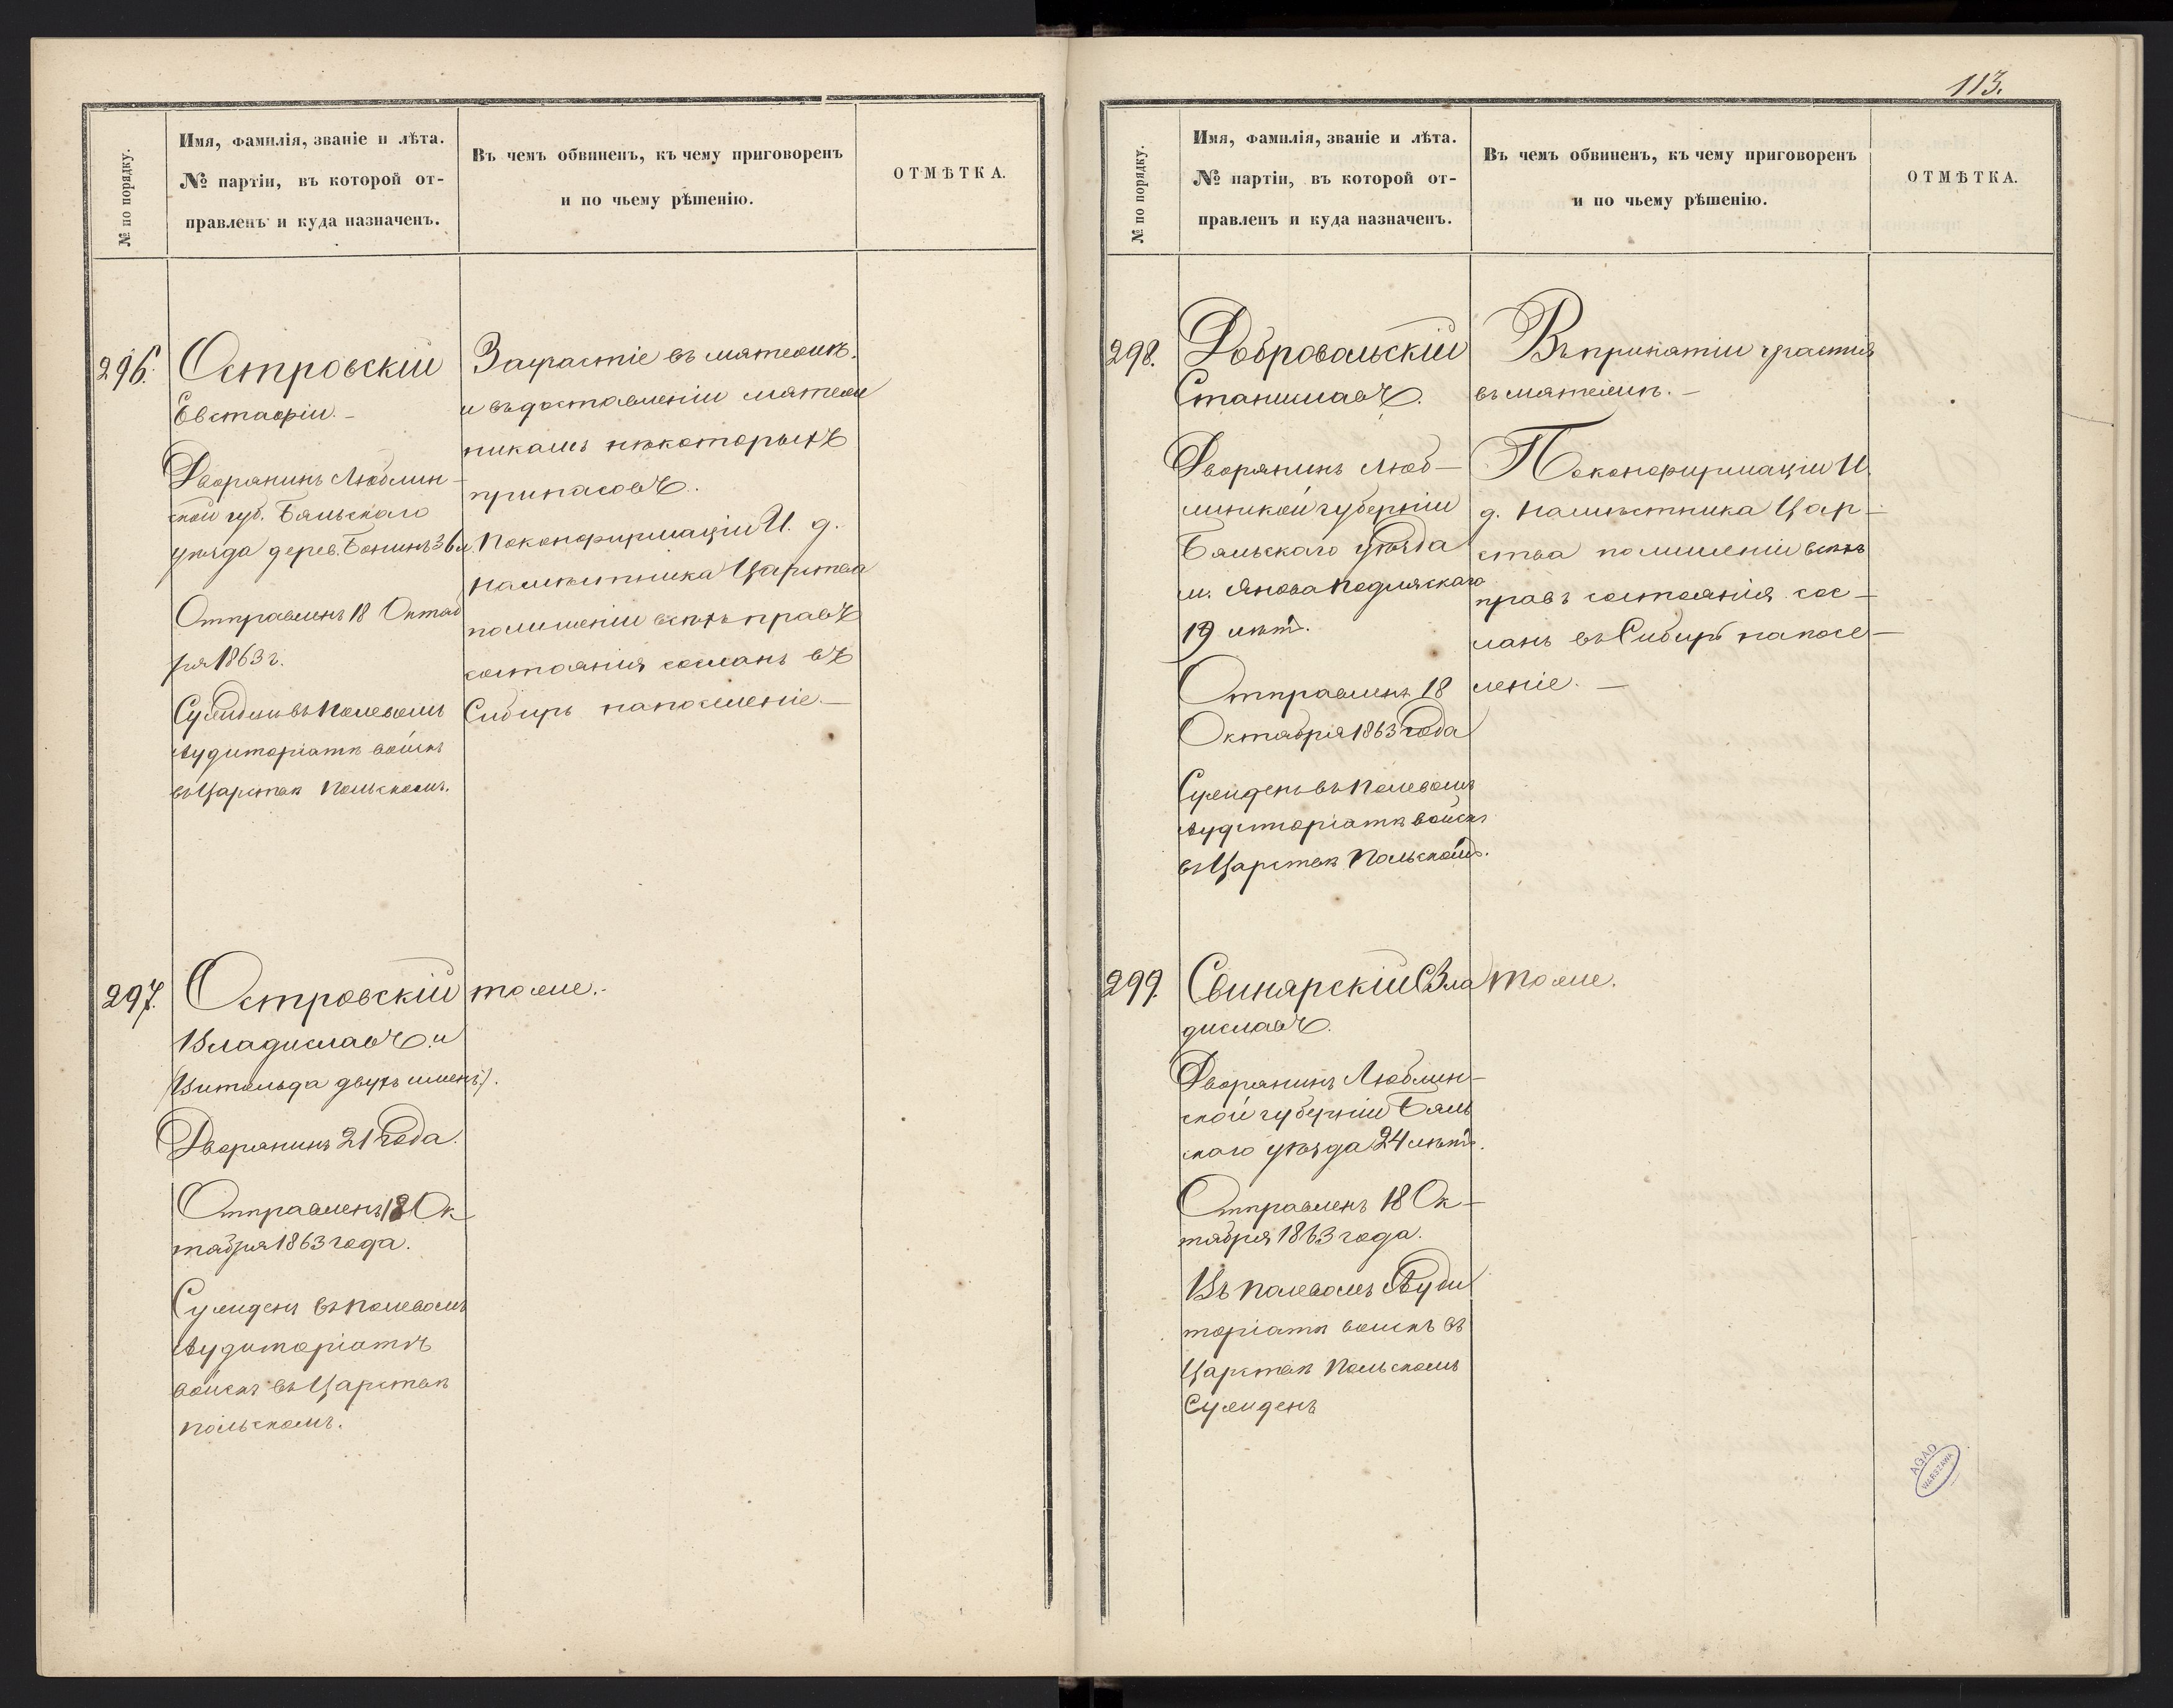 № по порядку.
Имя, фамилія, званіе и лѣта.
№ партіи, въ которой от-
правленъ и куда назначенъ.
Въ чемъ обвиненъ, къ чему приговоренъ
и по чьему рѣшенію.
ОТМѢТКА.
296.
Островскій
Евстафій. -
Дворянинъ Люблин-
ской губ. Бяльскаго
уѣзда дерев.
Отправленъ 18 Октяб
ря 1863 г.
Сужденъ въ Полевомъ
Аудиторіатѣ войскъ
въ Царствѣ Польскомъ.
За участіе въ мятежѣ.
и въ доставленіи мятеж
никамъ нѣкоторыхъ
припасовъ.
По конфирмаціи И. д.
Намѣстника Царства
по лишеніи всѣхъ правъ
состоянія сосланъ въ
Сибирь на поселеніе. —
297.
Островскій
Владиславъ и
(Витольда двухъ именъ).
Дворянинъ 21 года.
Отправленъ 18 Ок-
тября 1863 года.
Сужденъ въ Полевомъ
Аудиторіатѣ
войскъ въ Царствѣ
Польскомъ.
тоже. -
113.
№ по порядку.
Имя, фамилія, званіе и лѣта.
№ партіи, въ которой от-
правленъ и куда назначенъ.
Въ чемъ обвиненъ, къ чему приговоренъ
и по чьему рѣшенію.
ОТМѢТКА.
298.
Добровольскій
Станиславъ.
Дворянинъ Люб-
линской губерніи
Бяльскаго уѣзда
м. Янова Подляскаго
19 лѣтъ.
Отправленъ 18
Октября 1863 года
Сужденъ въ Полевомъ
Аудиторіатѣ войскъ
въ Царствѣ Польскомъ.
Въ принятіи участія
въ мятежѣ. -
По конфирмаціи И.
д. Намѣстника Цар-
ства по лишеніи всѣхъ
правъ состоянія сос-
ланъ въ Сибирь на посе-
леніе. —
299.
Свинарскій Вла
диславъ.
Дворянинъ Люблин-
ской губерніи Бяль
скаго уѣзда 24 лѣтъ.
Отправленъ 18 Ок-
тября 1863 года.
Въ Полевомъ Ауди
торіатѣ войскъ въ
Царствѣ Польскомъ
Сужденъ
Тоже.
AGAD
WARSZAWA